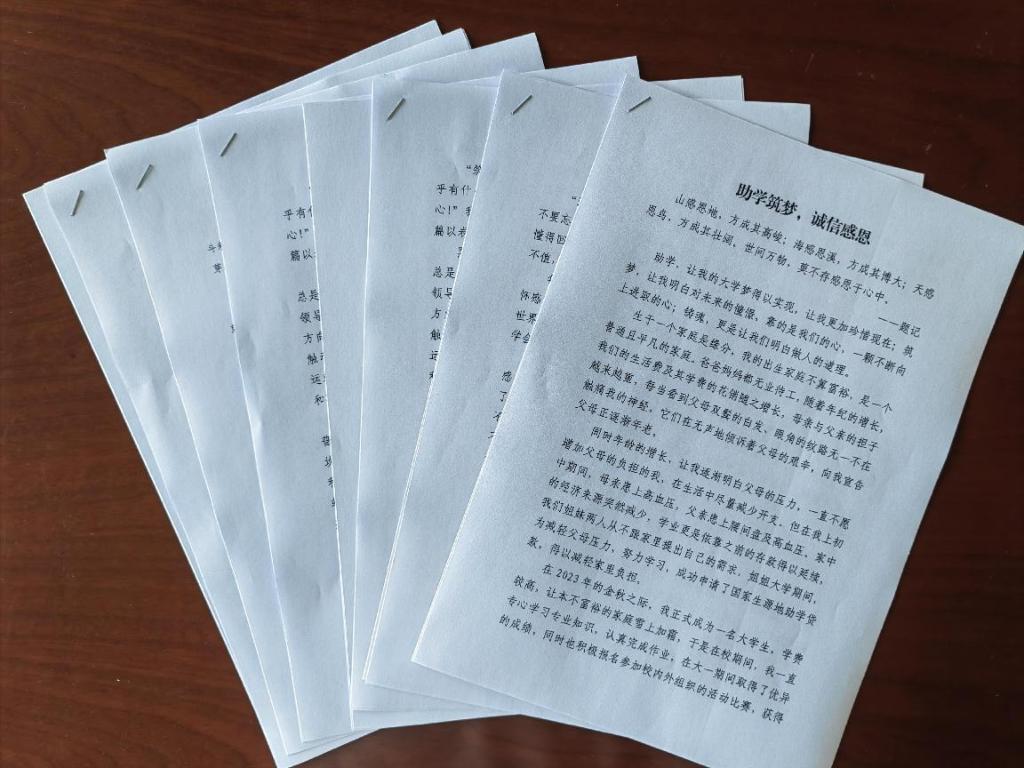 助学筑梦，诚信感恩
山感恩地，方成其高峻；海感恩溪，方成其博大；天感
恩鸟，方成其壮阔，世间万物，莫不存感恩于心中。
——题记
助学，让我的大学梦得以实现，让我更加珍惜现在；筑
梦，让我明白对未来的憧憬，靠的是我们的心，一颗不断向
上进取的心；铸魂，更是让我们明白做人的道理。
生于一个家庭是缘分，我的出生家庭不算富裕，是一个
普通且平凡的家庭。爸爸妈妈都无业待工，随着年纪的增长，
我们的生活费及其学费的花销随之增长，母亲与父亲的担子
越来越重，每当看到父母双鬓的白发、眼角的纹路无一不在
触痛我的神经，它们在无声地倾诉着父母的艰辛，向我宣告
父母正逐渐年老。
同时年龄的增长，让我逐渐明白父母的压力，一直不愿
增加父母的负担的我，在生活中尽量减少开支。但在我上初
中期间，母亲患上高血压，父亲患上腰间盘及高血压，家中
的经济来源突然减少，学业更是依靠之前的存款得以延续，
我们姐妹两人从不跟家里提出自己的需求。姐姐大学期间，
为减轻父母压力，努力学习，成功申请了国家生源地助学贷
款，得以减轻家里负担。
在 2023 年的金秋之际，我正式成为一名大学生，学费
较高，让本不富裕的家庭雪上加霜，于是在校期间，我一直
专心学习专业知识，认真完成作业，在大一期间取得了优异
的成绩，同时也积极报名参加校内外组织的活动比赛，获得
不要忘
懂得回
不值。
怀感
世界
学会
感
了
乎有什
心！”我
篇以
总是
领导
方
触
运
乎有什
心！”
篇以
总是
领导
方向
触动
运
和